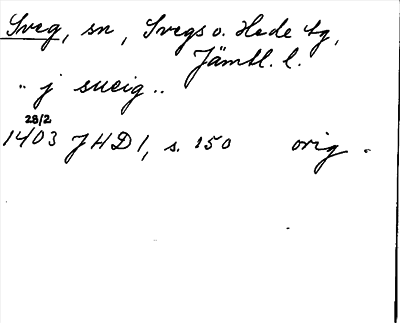 Sveg, sn, Svegs o. Hede tg,
Jämtl. l.
" j sueig ..
28/2
1403 JHD 1, s. 150 orig.